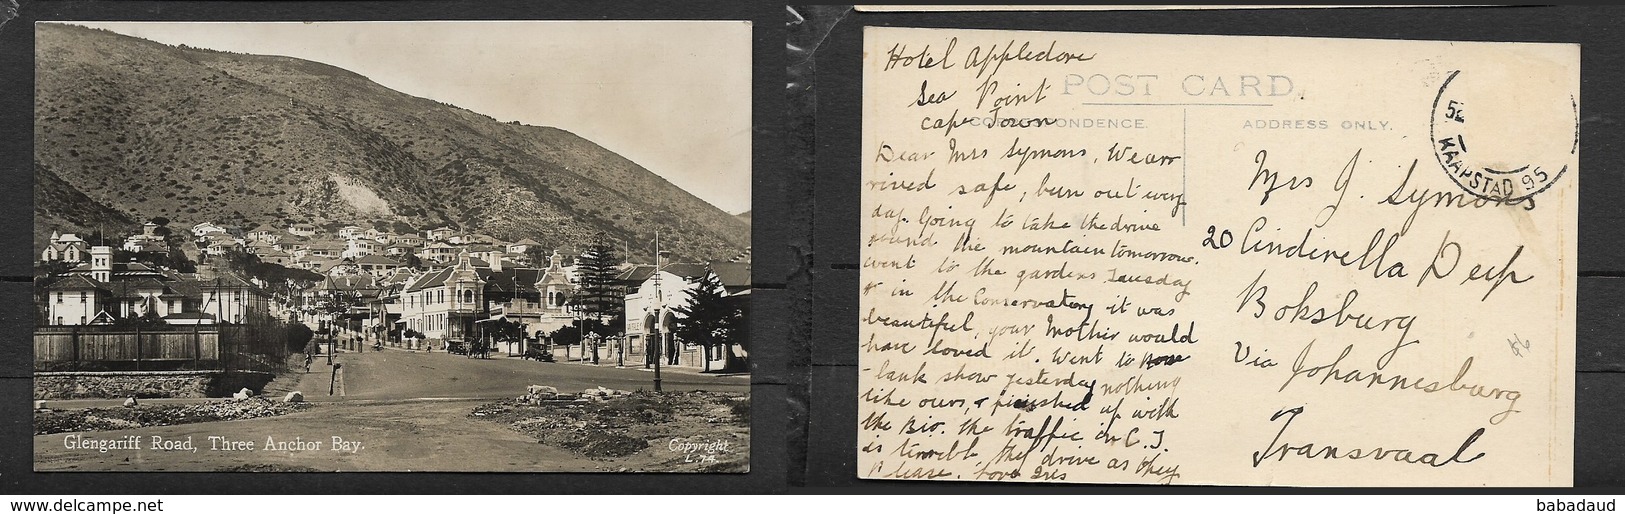 Glengariff Road, Three Anchor Bay.
Copyright
L.74.
Hotel Appledore
Sea Point
Cape Town
POST CARD.
CORRESPONDENCE.
ADDRESS ONLY.
Dear Mrs Symons, We arr
rived safe, bun out every
day. Going to take the drive
round the mountain tomorrow.
went to the gardens Teusday
& in the Conservatory it was
beautiful, your Mother would
have loved it. Went to
show yesterday nothing
like ours, & finished up with
the Bio. the traffic in C.T.
is terrible they drive as they
Please. Love Iris
Mrs J. Symons
20 Cinderella Deep
Boksburg
Via Johannesburg
Transvaal
KAAPSTAD 95
babadaud